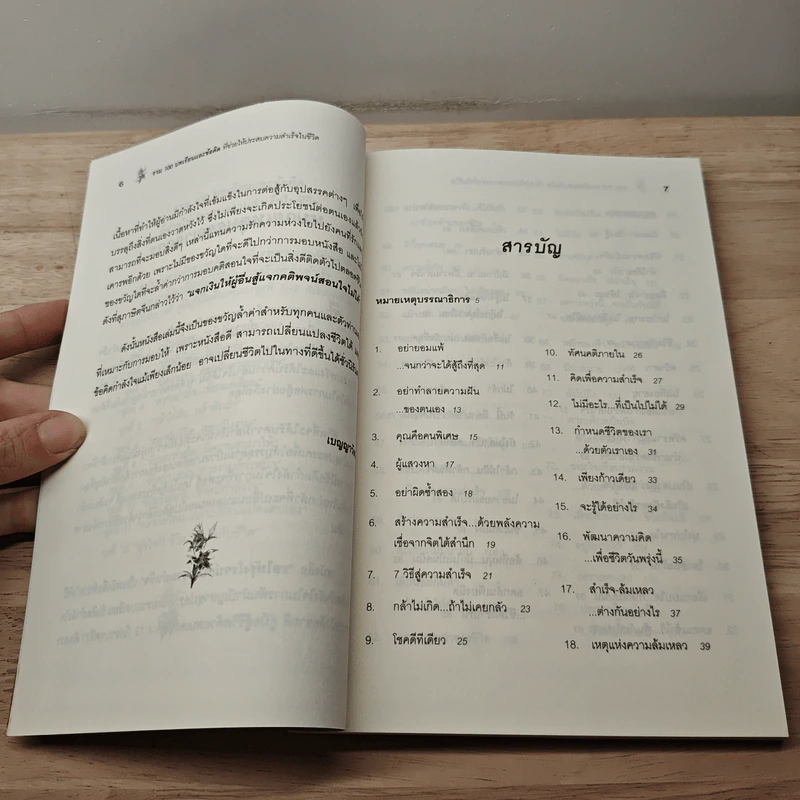 6 รวม 100 บทเรียนและข้อคิด ที่ช่วยให้ประสบความสำเร็จในชีวิต
เนื้อหาที่ทำให้ผู้อ่านมีกำลังใจที่เข้มแข็งในการต่อสู้กับอุปสรรคต่างๆ
บรรลุถึงสิ่งที่ตนเองวาดหวังไว้ ซึ่งไม่เพียงจะเกิดประโยชน์ต่อตนเองแล้ว
สามารถที่จะมอบสิ่งดีๆ เหล่านี้แทนความรักความห่วงใยไปยังคนที่รัก
เคารพอีกด้วย เพราะไม่มีของขวัญใดที่จะดีไปกว่าการมอบหนังสือ
ของขวัญใดที่จะล้ำค่ากว่าการมอบคติสอนใจที่จะเป็นสิ่งดีติดตัวไปตลอด
ดังที่สุภาษิตจีนกล่าวไว้ว่า "แจกเงินให้ผู้อื่นสู้แจกคติพจน์สอนใจไม่ได้
ดังนั้นหนังสือเล่มนี้จึงเป็นของขวัญล้ำค่าสำหรับทุกคนและตัวท่าน
ที่เหมาะกับการมอบให้ เพราะหนังสือดี สามารถเปลี่ยนแปลงชีวิตได้
ข้อคิดกำลังใจแม้เพียงเล็กน้อย อาจเปลี่ยนชีวิตไปในทางที่ดีขึ้นได้
7
สารบัญ
หมายเหตุบรรณาธิการ 5
1. อย่ายอมแพ้
...จนกว่าจะได้สู้ถึงที่สุด 11
2. อย่าทำลายความฝัน
...ของตนเอง 13
3. คุณคือคนพิเศษ 15
4. ผู้แสวงหา 17
5. อย่าผิดซ้ำสอง 18
6. สร้างความสำเร็จ...ด้วยพลังความ
เชื่อจากจิตใต้สำนึก 19
7. 7 วิธีสู่ความสำเร็จ 21
8. กล้าไม่เกิด...ถ้าไม่เคยกลัว 23
9. โชคดีทีเดียว 25
10. ทัศนคติภายใน 26
11. คิดเพื่อความสำเร็จ 27
12. ไม่มีอะไร...ที่เป็นไปไม่ได้ 29
13. กำหนดชีวิตของเรา
...ด้วยตัวเราเอง 31
14. เพียงก้าวเดียว 33
15. จะรู้ได้อย่างไร 34
16. พัฒนาความคิด
...เพื่อชีวิตวันพรุ่งนี้ 35
17. สำเร็จ-ล้มเหลว
...ต่างกันอย่างไร 37
18. เหตุแห่งความล้มเหลว 39